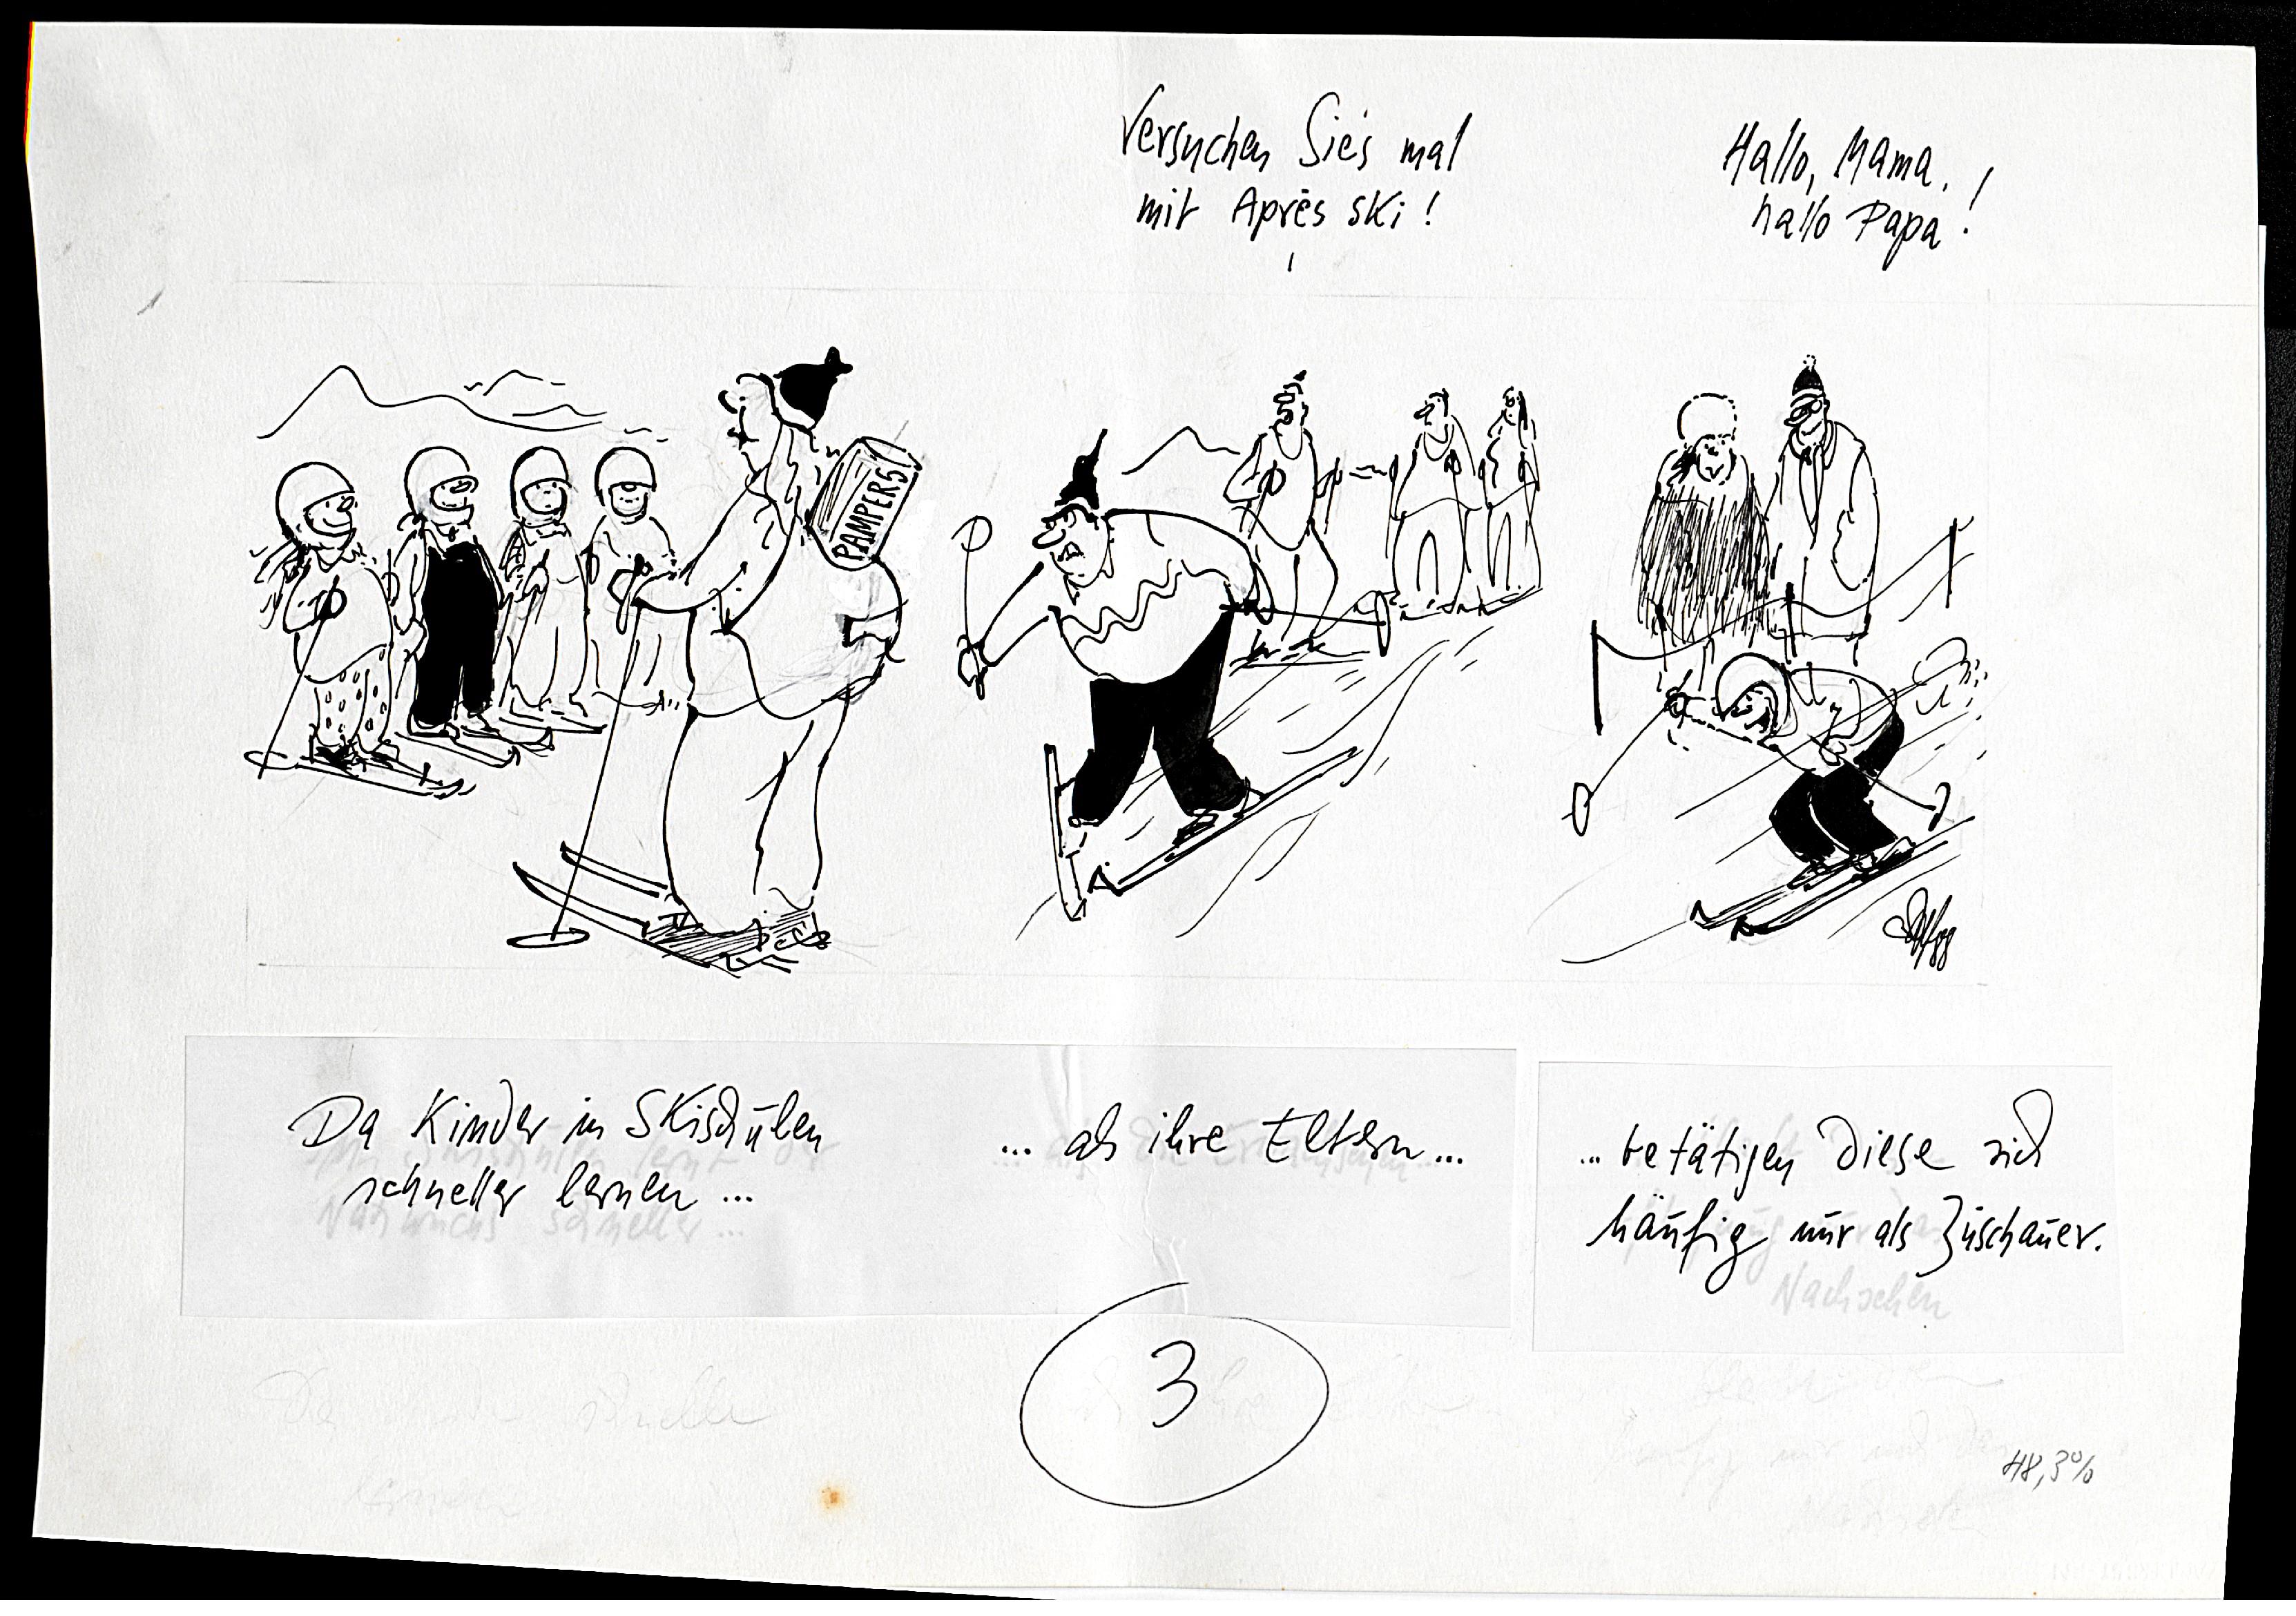 Versuchen Sie's mal
mit Après Ski!
Hallo, Mama,!
hallo Papa!
PAMPERS
Da Kinder in Skischulen
schneller lernen ...
... als ihre Eltern ...
... betätigen diese sich
häufig nur als Zuschauer.
Nachsehen
3
48,3%